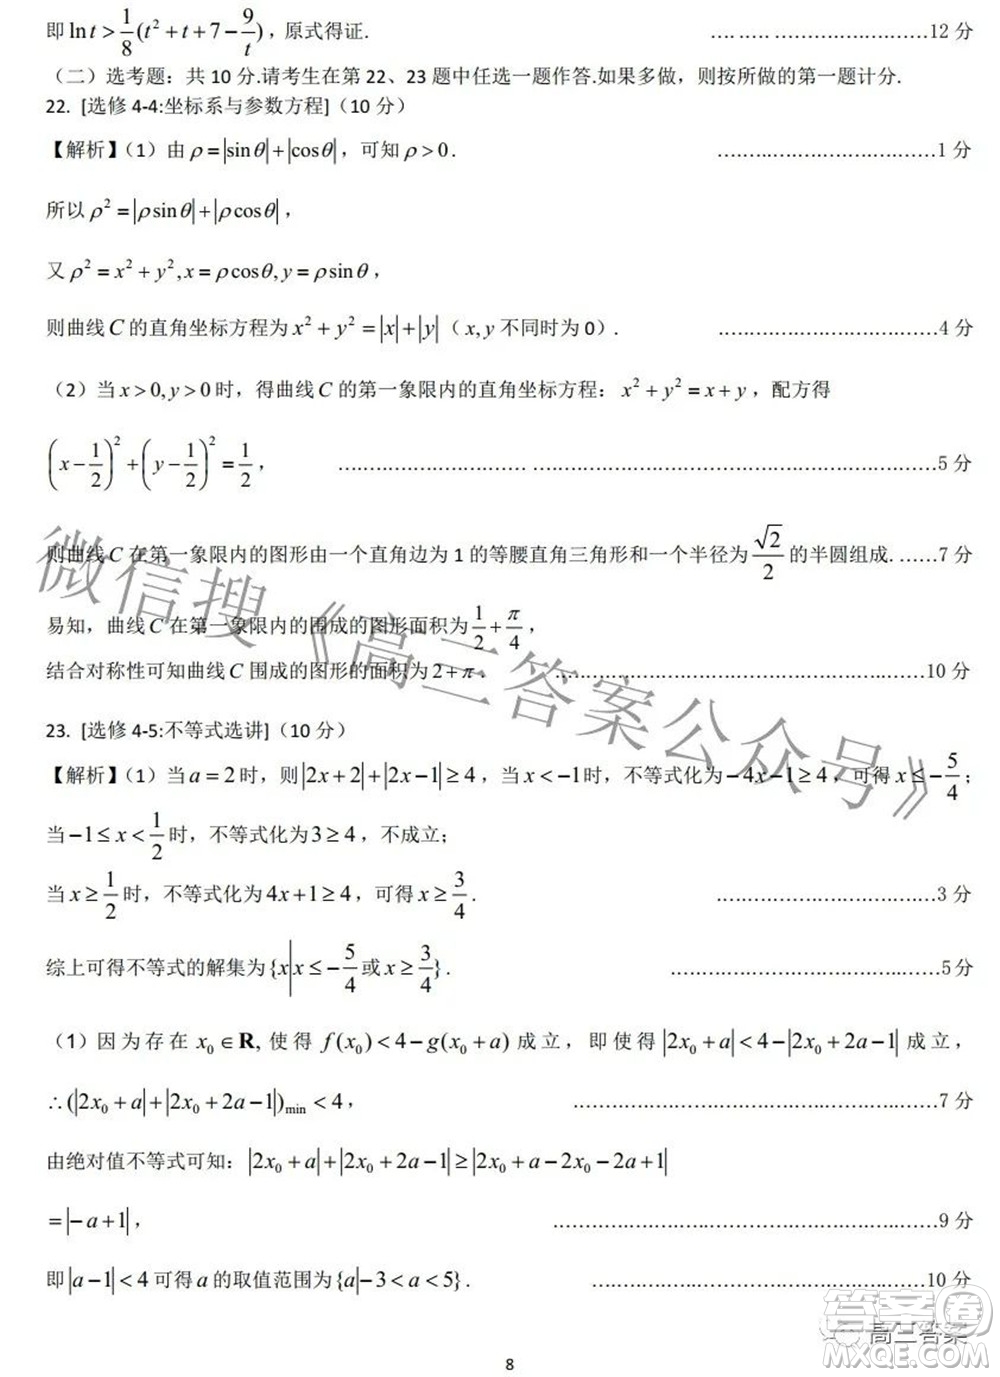 即 ln t > 1/8 (t² + t + 7 − 9/t)，原式得证. ……………………………12 分
（二）选考题：共 10 分.请考生在第 22、23 题中任选一题作答.如果多做，则按所做的第一题计分.
22. [选修 4-4:坐标系与参数方程]（10 分）
【解析】（1）由 ρ = |sin θ| + |cos θ|，可知 ρ > 0. ……………………………1 分
所以 ρ² = |ρ sin θ| + |ρ cos θ|，
又 ρ² = x² + y², x = ρ cos θ, y = ρ sin θ，
则曲线 C 的直角坐标方程为 x² + y² = |x| + |y|（ x, y 不同时为 0）. ……………………………4 分
（2）当 x > 0, y > 0 时，得曲线 C 的第一象限内的直角坐标方程：x² + y² = x + y，配方得
(x − 1/2)² + (y − 1/2)² = 1/2， ……………………………5 分
则曲线 C 在第一象限内的图形由一个直角边为 1 的等腰直角三角形和一个半径为 √2/2 的半圆组成. ……7 分
易知，曲线 C 在第一象限内的围成的图形面积为 1/2 + π/4，
结合对称性可知曲线 C 围成的图形的面积为 2 + π. ……………………………10 分
23. [选修 4-5:不等式选讲]（10 分）
【解析】（1）当 a = 2 时，则 |2x + 2| + |2x − 1| ≥ 4，当 x < −1 时，不等式化为 −4x − 1 ≥ 4，可得 x ≤ −5/4；
当 −1 ≤ x < 1/2 时，不等式化为 3 ≥ 4，不成立；
当 x ≥ 1/2 时，不等式化为 4x + 1 ≥ 4，可得 x ≥ 3/4. ……………………………3 分
综上可得不等式的解集为 {x | x ≤ −5/4 或 x ≥ 3/4}. ……………………………5 分
（1）因为存在 x₀ ∈ R, 使得 f(x₀) < 4 − g(x₀ + a) 成立，即使得 |2x₀ + a| < 4 − |2x₀ + 2a − 1| 成立，
∴ (|2x₀ + a| + |2x₀ + 2a − 1|)min < 4， ……………………………7 分
由绝对值不等式可知：|2x₀ + a| + |2x₀ + 2a − 1| ≥ |2x₀ + a − 2x₀ − 2a + 1|
= |−a + 1|， ……………………………9 分
即 |a − 1| < 4 可得 a 的取值范围为 {a | −3 < a < 5}. ……………………………10 分
微信搜《高三答案公众号》
答案圈
高三答案
MXQE.COM
8